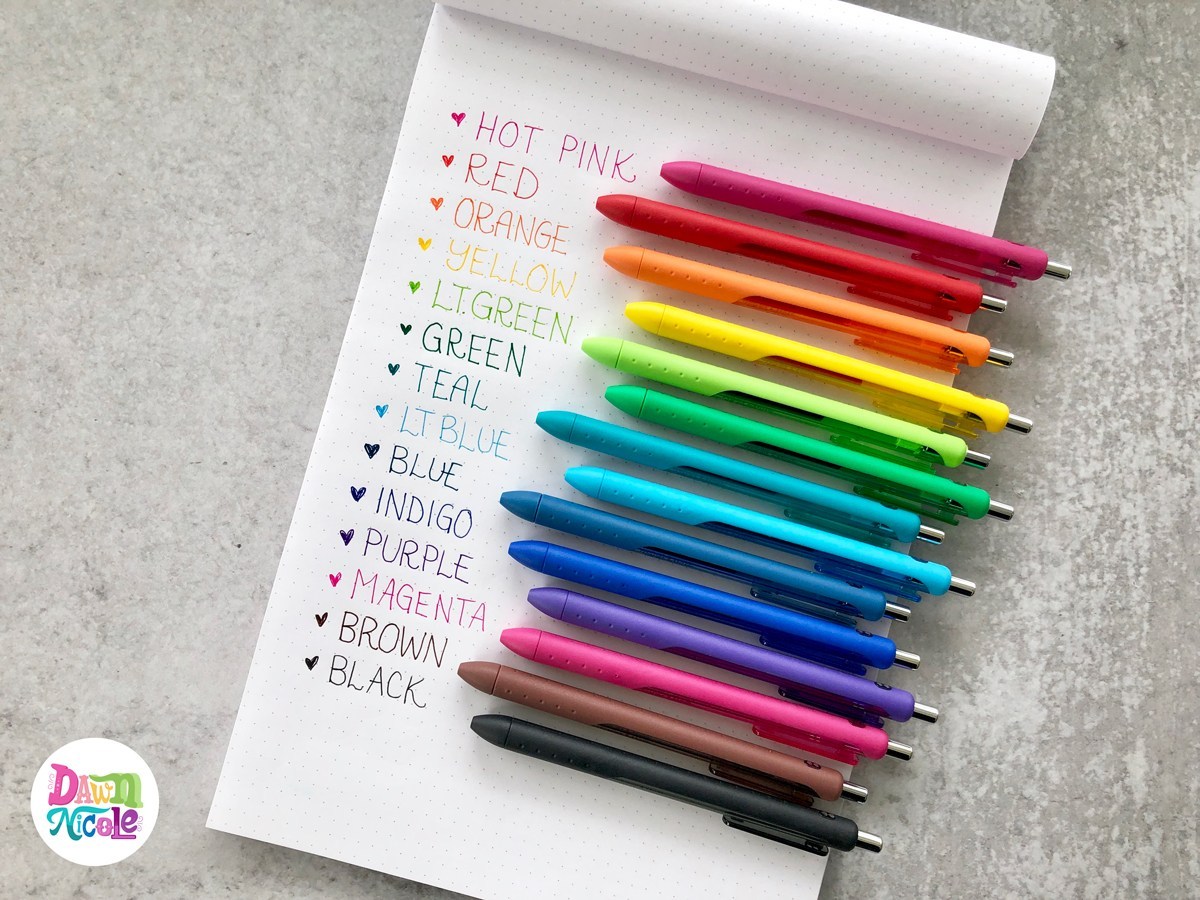 HOT PINK
RED
ORANGE
YELLOW
LT. GREEN
GREEN
TEAL
LT BLUE
BLUE
INDIGO
PURPLE
MAGENTA
BROWN
BLACK
DAWN
NICOLE